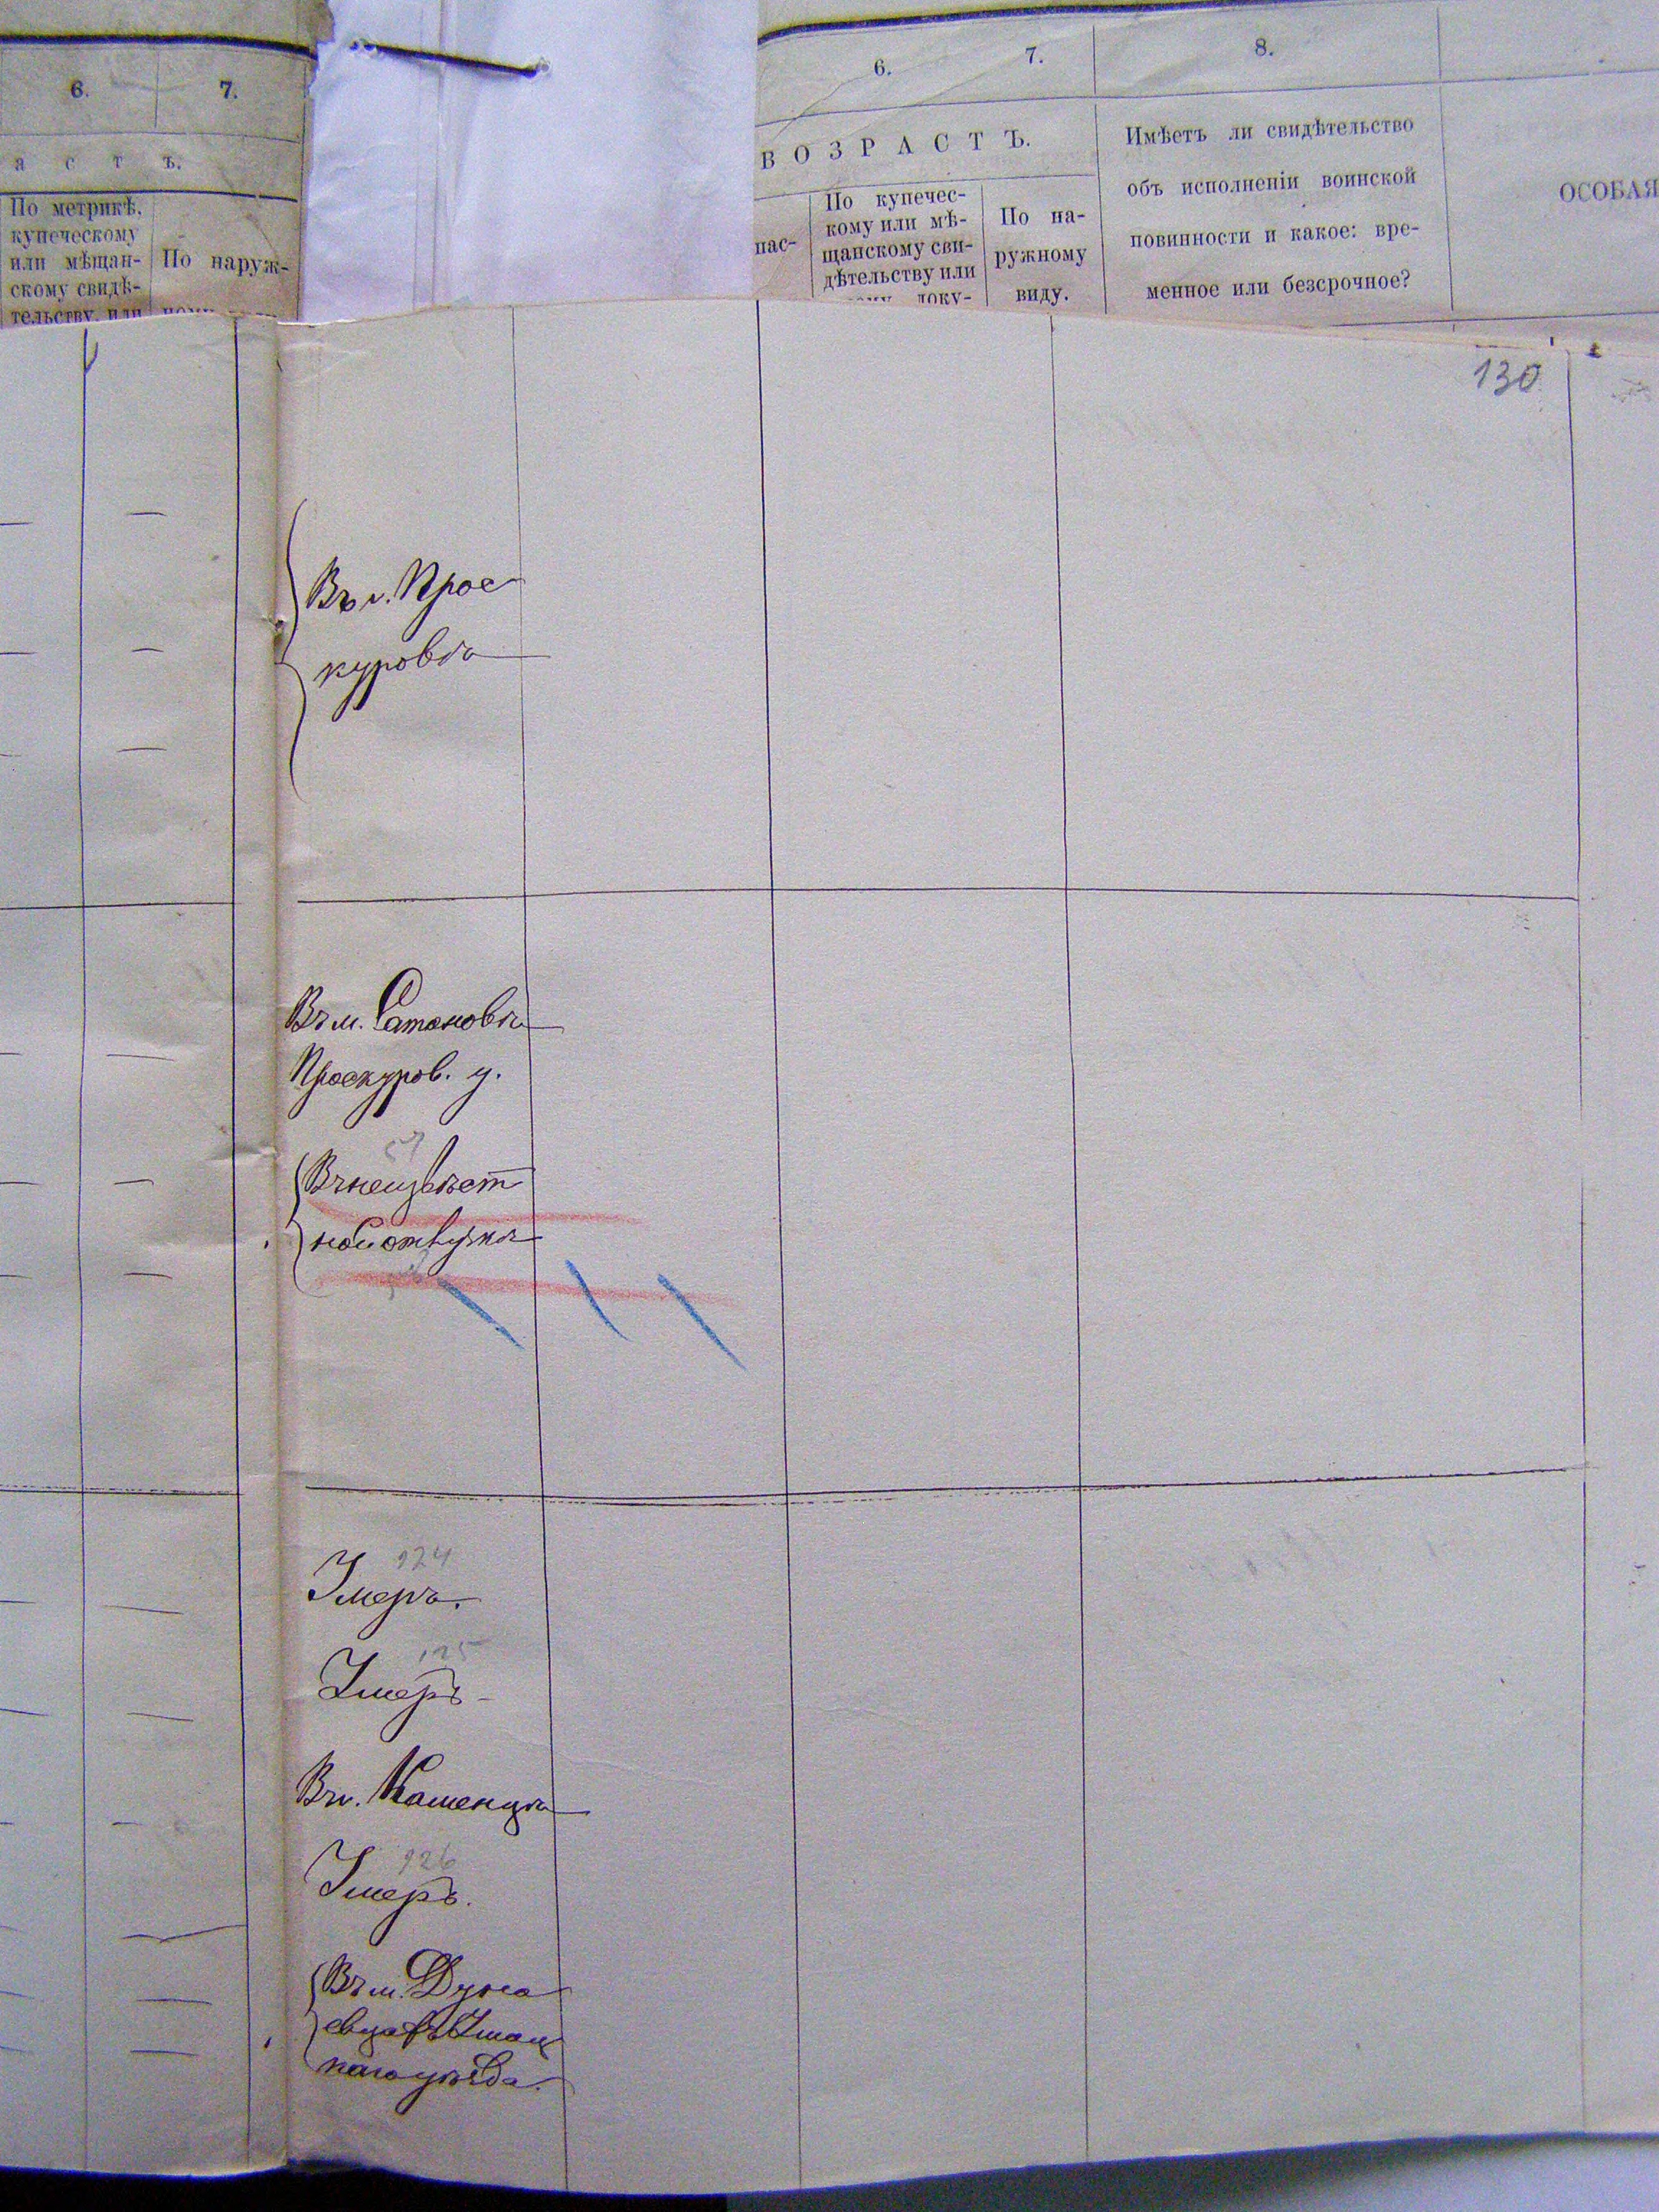 6. 7.
а с т ъ.
По метрикѣ,
купеческому
или мѣщан-
скому свидѣ-
тельству, или
По наруж-
6. 7. 8.
ВОЗРАСТЪ.
пас-
По купечес-
кому или мѣ-
щанскому сви-
дѣтельству или
доку-
По на-
ружному
виду.
Имѣетъ ли свидѣтельство
объ исполненіи воинской
повинности и какое: вре-
менное или безсрочное?
ОСОБАЯ
130
Въ г. Прос
куровѣ
Въ м. Сатановѣ
Проскуров. у.
Въ неизвѣст
ной отлучкѣ
124
Умеръ.
125
Умеръ
Въ г. Каменцѣ
126
Умеръ.
Въ м. Дуна
евцахъ Ушиц
каго уѣзда.